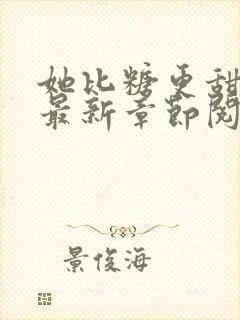 她比糖更甜
最新章节阅
景俊海